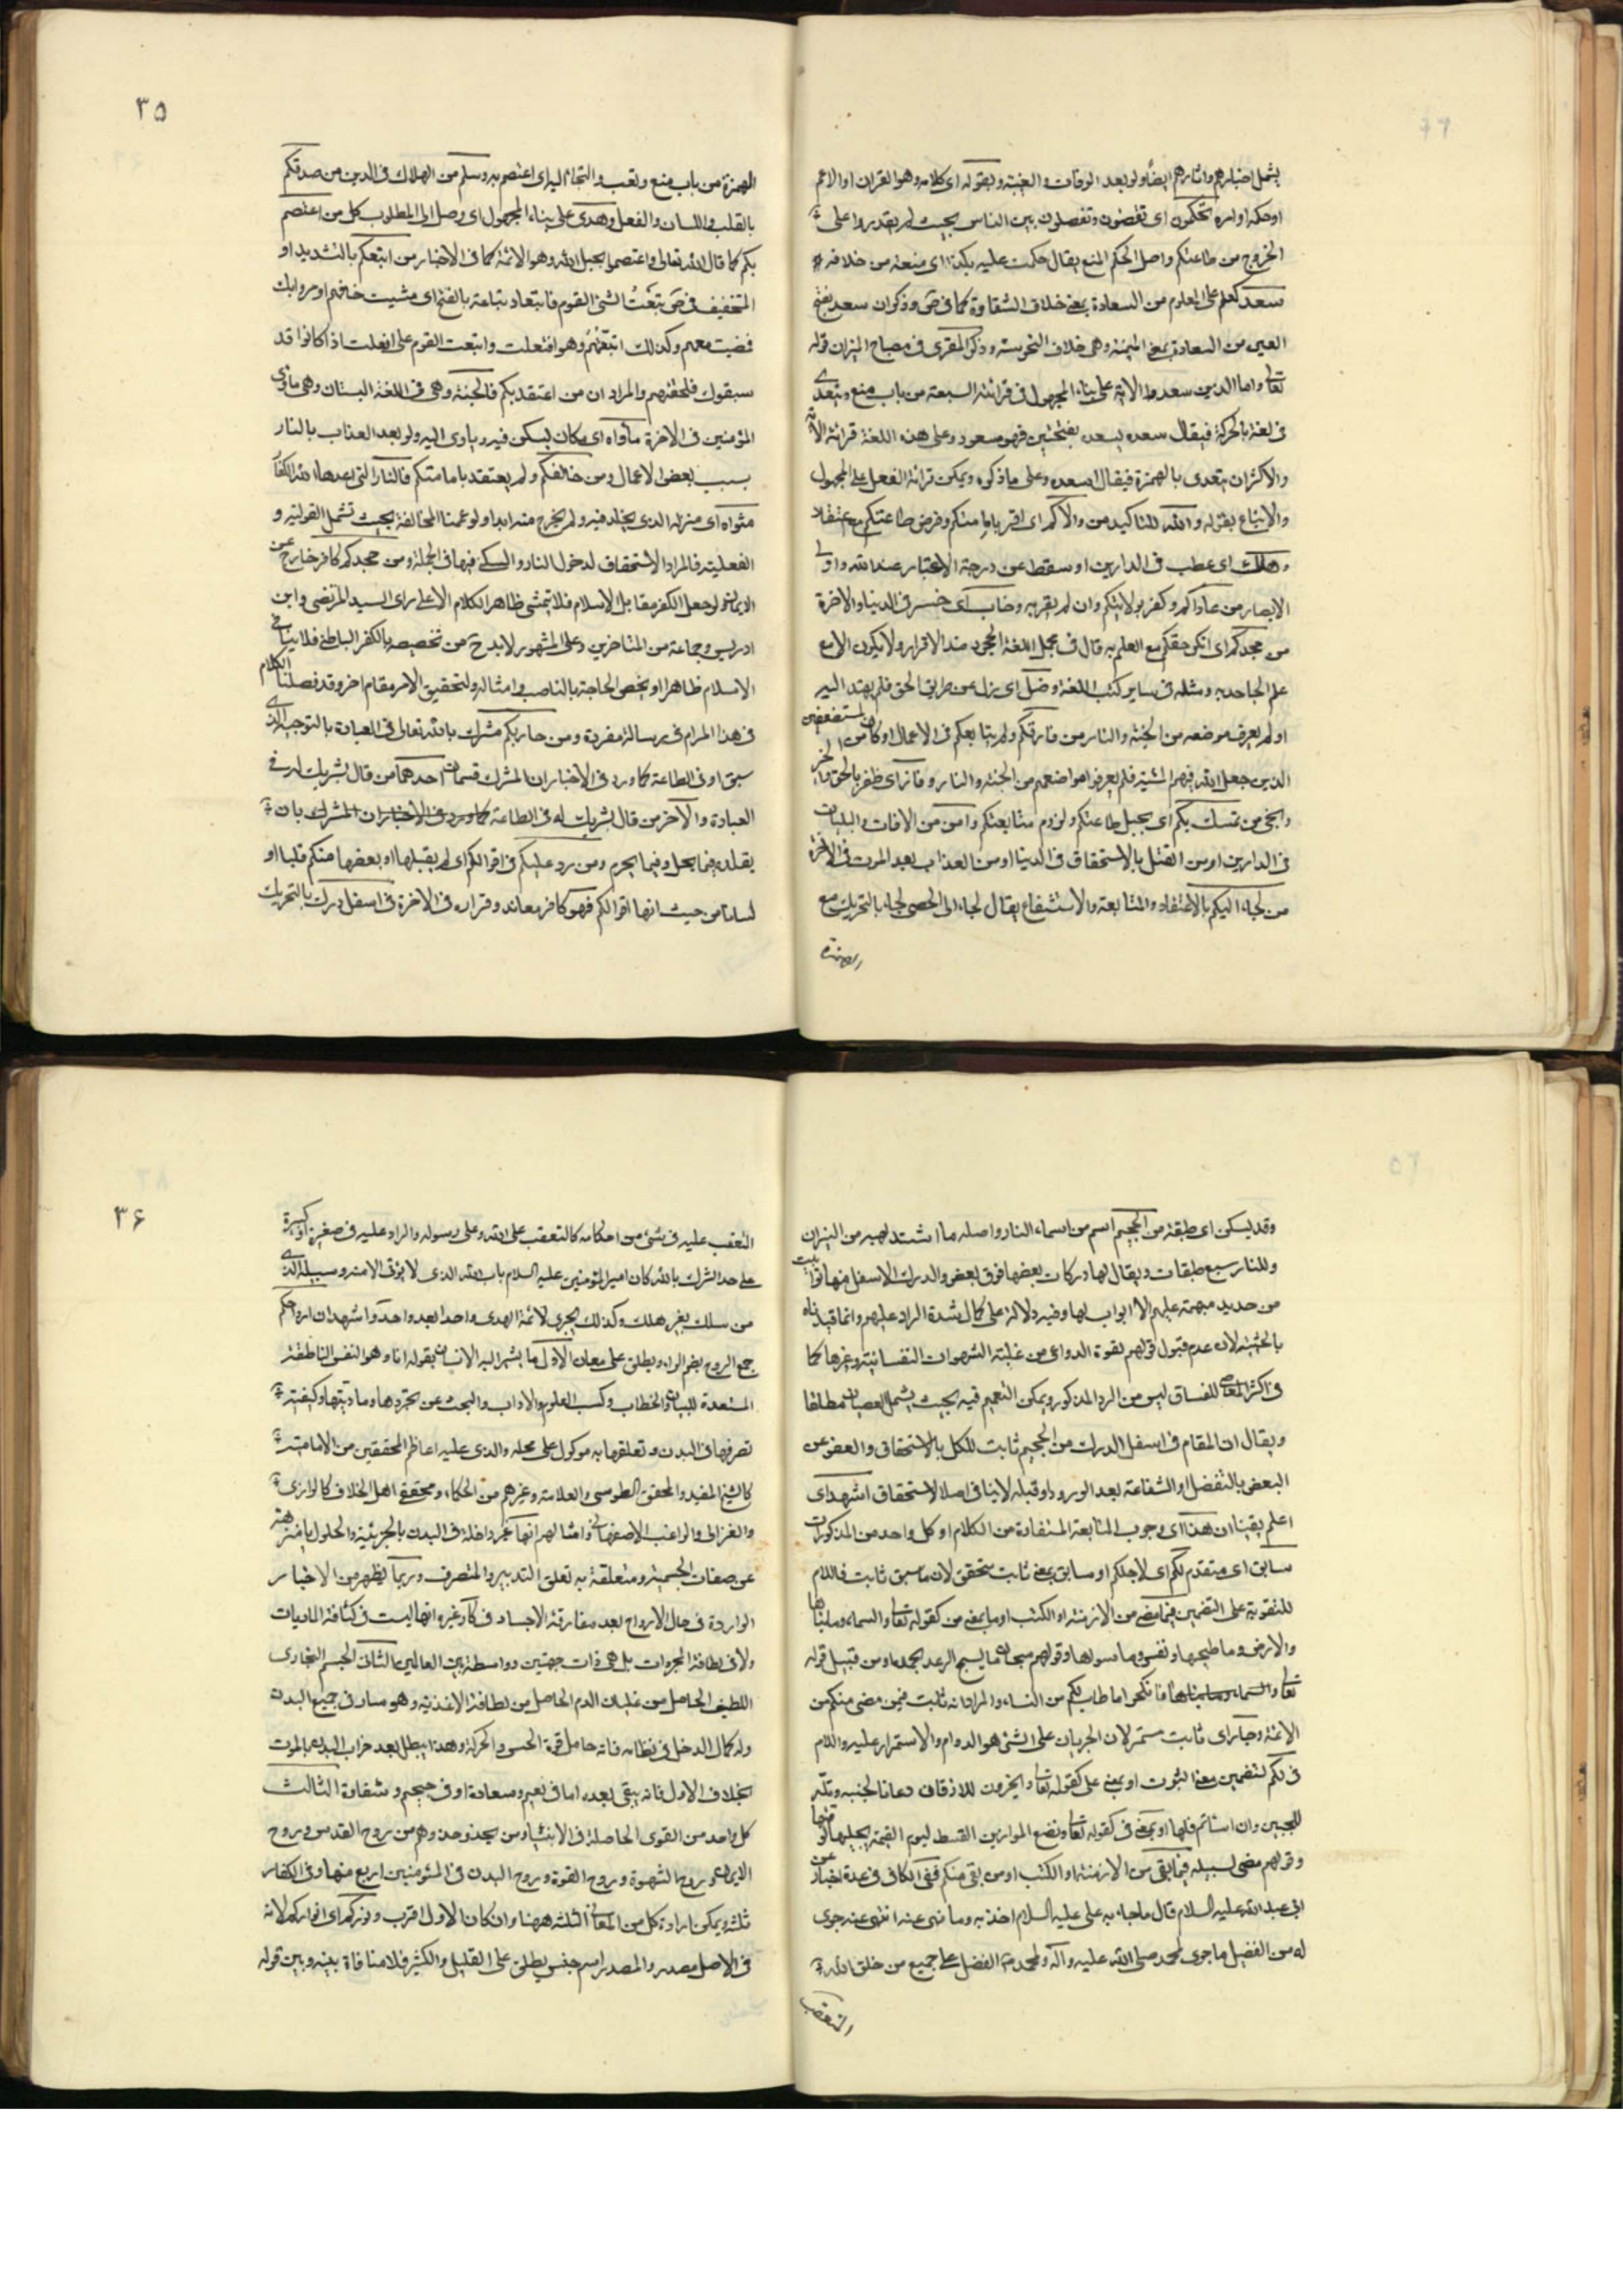 يشمل اخبارهم واثارهم ايضا ولو بعد الوفات والغيبة وبقوله اى كلامه وهو القران او الاعم
او حكمه او امره تحكمون اى تقضون وتفصلون بين الناس بحيث لم يقدروا على
الخروج من طاعتكم واصل الحكم المنع يقال حكمت عليه بكذا اى منعته من خلافه
سعد كعلم على المعلوم من السعادة بمعنى خلاف الشقاوة كما فى ص وذكر ان سعد بفتح
العين من السعادة بمعنى اليمنة وهى خلاف النحوسة وذكر المقرى فى مصباح المنير ان قوله
تعالى واما الذين سعدوا الاية على بناء المجهول فى قرائة السبعة من باب منع ويتعدى
فى لغة بالحركة فيقال سعده يسعده بفتحتين فهو مسعود وعلى هذه اللغة قرائة الاية
والاكثر ان يتعدى بالهمزة فيقال اسعده وعلى ما ذكره ويمكن قرائة الفعل على المجهول
والاتباع بقوله والله للتاكيد من والاكم اى اقر بامامتكم وفرض طاعتكم مع اعتقاد
وهلك اى عطب فى الدارين او سقط عن درجة الاعتبار عند الله واولى
الابصار من عاداكم وكفر بولايتكم وان لم يقر به وخاب اى خسر فى الدنيا والاخرة
من جحدكم اى انكر حقكم مع العلم به قال فى مجمل اللغة الجحود ضد الاقرار ولا يكون الا مع
علم الجاحد به ومثله فى ساير كتب اللغة وضل اى زل عن طريق الحق فلم يهتد اليه
او لم يعرف موضعه من الجنة والنار من فارقكم ولم يتابعكم فى الاعمال او كان من المستضعفين
الذين جعل الله فيهم المشية فلم يعرفوا مواضعهم من الجنة والنار وفاز اى ظفر بالحق والخير
ونجى من تمسك بكم اى بحبل طاعتكم ولزوم متابعتكم وامن من الافات والبليات
فى الدارين او من القتل بالاستحقاق فى الدنيا او من العذاب بعد الموت فى الاخرة
من لجاء اليكم بالاعتقاد والمتابعة والاستشفاع يقال لجاء الى الحصن لجاء بالتحريك مع
الهمزة
۳۵
الهمزة من باب منع وتعب والتجاء اليه اى اعتصم به وسلم من الهلاك فى الدين من صدقكم
بالقلب واللسان والفعل وهدى على بناء المجهول اى وصل الى المطلوب كل من اعتصم
بكم كما قال الله تعالى واعتصموا بحبل الله وهو الائمة كما فى الاخبار من اتبعكم بالتشديد او
التخفيف فى ص تبعت الشئ القوم تباعا وتباعة بالفتح اى مشيت خلفهم او مروا بك
فمضيت معهم وكذلك اتبعتهم وهو افتعلت واتبعت القوم على افعلت اذا كانوا قد
سبقوك فلحقتهم والمراد ان من اعتقد بكم فالجنة وهى فى اللغة البستان وهى ماوى
المؤمنين فى الاخرة مأواه اى مكان يسكن فيه وياوى اليه ولو بعد العذاب بالنار
بسبب بعض الاعمال ومن خالفكم ولم يعتقد بامامتكم فالنار التى اعدها الله للكفار
مثواه اى منزله الذى يخلد فيه ولم يخرج منه ابدا ولو عممنا المخالفة بحيث تشمل القولية و
الفعلية فالمراد الاستحقاق لدخول النار والسكنى فيها فى الجملة ومن جحدكم كافر خارج عن
الايمان ولو جعل الكفر مقابل الاسلام فلا يتمشى ظاهر الكلام الا على راى السيد المرتضى وابن
ادريس وجماعة من المتاخرين وعلى المشهور لابد ح من تخصيصه بالكفر الباطنى فلا ينافى
الاسلام ظاهرا او يخص الحاجة بالناصب وامثاله ولتحقيق الامر مقام اخر وقد فصلنا الكلام
فى هذا المرام فى رسالة مفردة ومن حاربكم مشرك بالله تعالى فى العبادة بالتوجيه الذى
سبق او فى الطاعة كما ورد فى الاخبار ان المشرك قسمان احدهما من قال بشريك له فى
العبادة والآخر من قال بشريك له فى الطاعة كما ورد فى الاخبار ان المشرك بان
يقلده فيما يحل وفيما يحرم ومن رد عليكم فى اقوالكم اى لم يقبلها او بعضها منكم قلبا او
لسانا من حيث انها اقوالكم فهو كافر معاند وقراره فى الاخرة فى اسفل درك بالتحريك
وقد يسكن اى طبقة من الجحيم اسم من اسماء النار واصله ما اشتد لهبه من النيران
وللنار سبع طبقات ويقال لها دركات بعضها فوق بعض والدرك الاسفل منها توابيت
من حديد مبهمة عليهم لا ابواب لها وفيه دلالة على كمال شدة الراد عليهم وانما قيدناه
بالحيثية لان عدم قبول قولهم لقوة الدواعى من غلبة الشهوات النفسانية وغيرها كما
فى اكثر المعاصى للفساق ليس من الرد المذكور ويمكن التعميم فيه بحيث يشمل العصيان مطلقا
ويقال ان المقام فى اسفل الدرك من الجحيم ثابت للكل بالاستحقاق والعفو عن
البعض بالتفضل او الشفاعة بعد الورود او قبله لا ينافى اصل الاستحقاق اشهد اى
اعلم يقينا ان هذا اى وجوب المتابعة المستفادة من الكلام او كل واحد من المذكورات
سابق اى متقدم لكم اى لاجلكم او سابق بمعنى ثابت متحقق لان ما سبق ثابت فاللام
للتقوية على التضمين فيما مضى من الازمنة او الكتب او ما بمعنى من كقوله تعالى والسماء وما بناها
والارض وما طحيها ونفس وما سواها وقولهم سبحان ما يسبح الرعد بحمده ومن قبيل قوله
تعالى والسماء وما بناها فانكحوا ما طاب لكم من النساء والمراد انه ثابت فيمن مضى منكم من
الائمة وجار اى ثابت مستمر لان الجريان على الشئ هو الدوام والاستمرار عليه واللام
فى لكم لتضمين معنى الثبوت او بمعنى على كقوله تعالى ويخرون للاذقان دعانا لجنبه وتله
للجبين وان اسأتم فلها او بمعنى فى كقوله تعالى ونضع الموازين القسط ليوم القيمة لا يجليها لوقتها
وقولهم مضى لسبيله فيما بقى من الازمنة او الكتب او من بقى منكم ففى الكافى فى عدة اخبار عن
ابى عبد الله عليه السلام قال ما جاء به على عليه السلام اخذ به وما نهى عنه انتهى عنه جرى
له من الفضل ما جرى لمحمد صلى الله عليه وآله ولمحمد ص الفضل على جميع من خلق الله
المتعقب
۳۶
المتعقب عليه فى شئ من احكامه كالمتعقب على الله وعلى رسوله والراد عليه فى صغيرة او كبيرة
على حد الشرك بالله كان امير المؤمنين عليه السلام باب الله الذى لا يؤتى الا منه وسبيله الذى
من سلك بغيره هلك وكذلك يجرى لائمة الهدى واحدا بعد واحد واشهد ان ارواحكم
جمع الروح بضم الراء ويطلق على معان الاول ما يشير اليه الانسان بقوله انا وهو النفس الناطقة
المستعدة للبيان والخطاب وكسب العلوم والاداب والبحث عن تجردها وماديتها وكيفية
تصرفها فى البدن وتعلقها به موكول على محله والذى عليه اعاظم المحققين من الامامية
كالشيخ المفيد والمحقق الطوسى والعلامة وغيرهم من الحكماء ومحققى اهل الخلاف كالرازى
والغزالى والراغب الاصفهانى وامثالهم انها غير داخلة فى البدن بالجزئية والحلول بل منزهة
عن صفات الجسمية ومتعلقة به تعلق التدبير والتصرف وربما يظهر من الاخبار
الواردة فى حال الارواح بعد مفارقة الاجساد فى كا وغيره انها ليست فى كثافة الماديات
ولا فى لطافة المجردات بل هى ذات جهتين وواسطة بين العالمين الثانى الجسم البخارى
اللطيف الحاصل من غليان الدم الحاصل من لطافة الاغذية وهو سار فى جميع البدن
وله كمال الدخل فى نظامه فانه حامل قوة الحس والحركة وهذا يبطل بعد خراب البدن بالموت
بخلاف الاول فانه يبقى بعده اما فى نعيم وسعادة او فى جحيم وشقاوة الثالث
كل واحد من القوى الحاصلة فى الانبياء ومن يحذو حذوهم من روح القدس وروح
الايمان وروح الشهوة وروح القوة وروح البدن فى المؤمنين اربع منها وفى الكفار
ثلثة ويمكن ارادة كل من المعانى الثلثة ههنا وان كان الاول اقرب ونوركم اى انواركم لانه
فى الاصل مصدر والمصدر اسم جنس يطلق على القليل والكثير فلا منافاة بينه وبين قوله